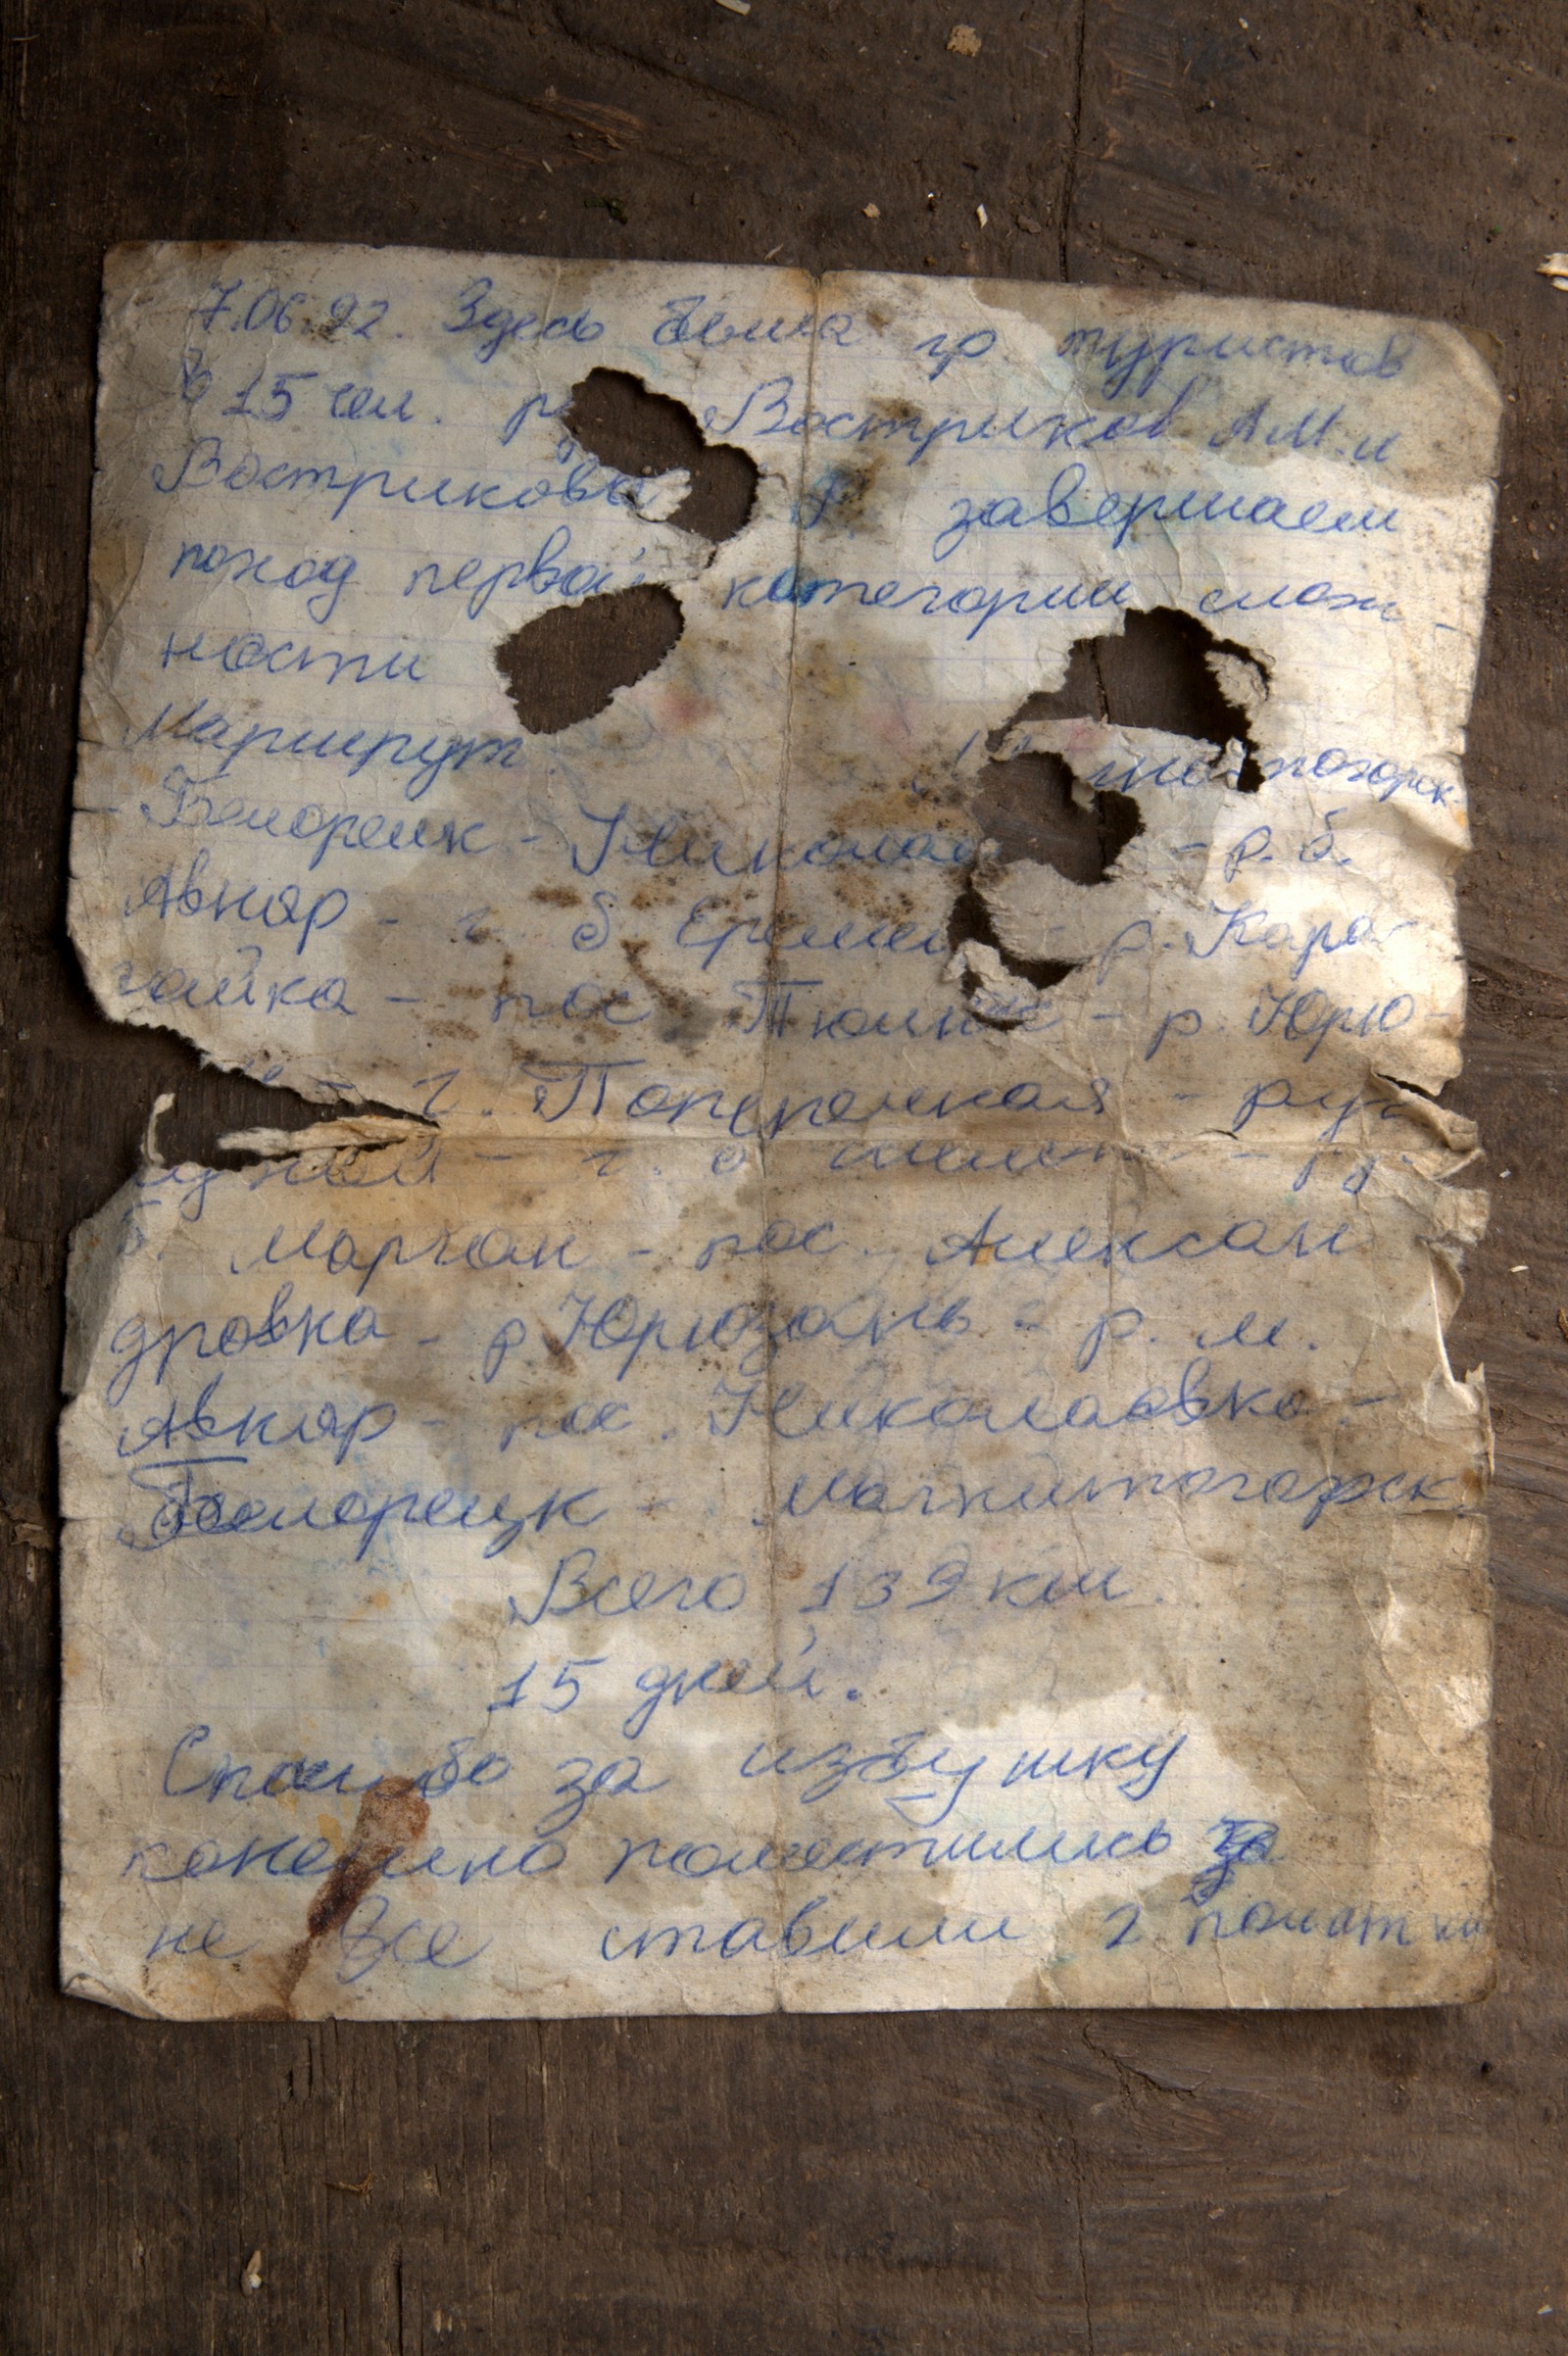 7.06.92. Здесь была гр. туристов
в 15 чел. Востриков А.М. и
Вострикова завершаем
поход первой категории слож-
ности
Маршрут
- Белорецк - - р. б.
Авняр - г. б. - р. Кара-
гайка - пос. Тюлюк - р. Юрю-
г. Поперечная -
г. б.
б. Маргон - пос. Алексан
дровка - р. Юрюзань - р. м.
Авняр - пос. Николаовка -
Белорецк - Магнитогорск
Всего 139 км.
15 дней.
Спасибо за избушку
конечно поместились
не все ставили 2 палатки